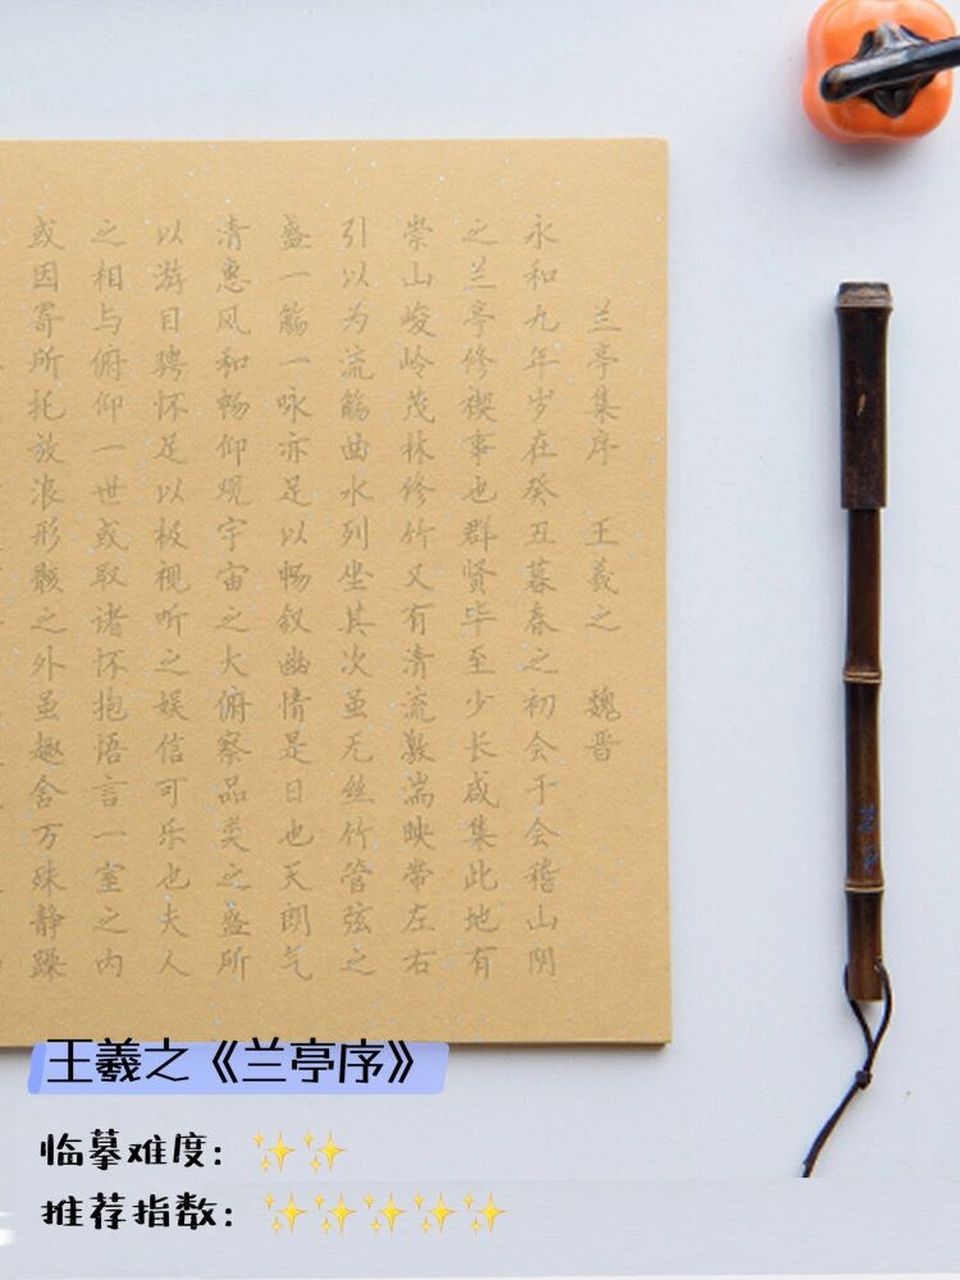 兰亭集序 王羲之 魏晋
永和九年岁在癸丑暮春之初会于会稽山阴
之兰亭修禊事也群贤毕至少长咸集此地有
崇山峻岭茂林修竹又有清流激湍映带左右
引以为流觞曲水列坐其次虽无丝竹管弦之
盛一觞一咏亦足以畅叙幽情是日也天朗气
清惠风和畅仰观宇宙之大俯察品类之盛所
以游目骋怀足以极视听之娱信可乐也夫人
之相与俯仰一世或取诸怀抱悟言一室之内
或因寄所托放浪形骸之外虽趣舍万殊静躁
王羲之《兰亭序》
临摹难度：✨✨
推荐指数：✨✨✨✨✨